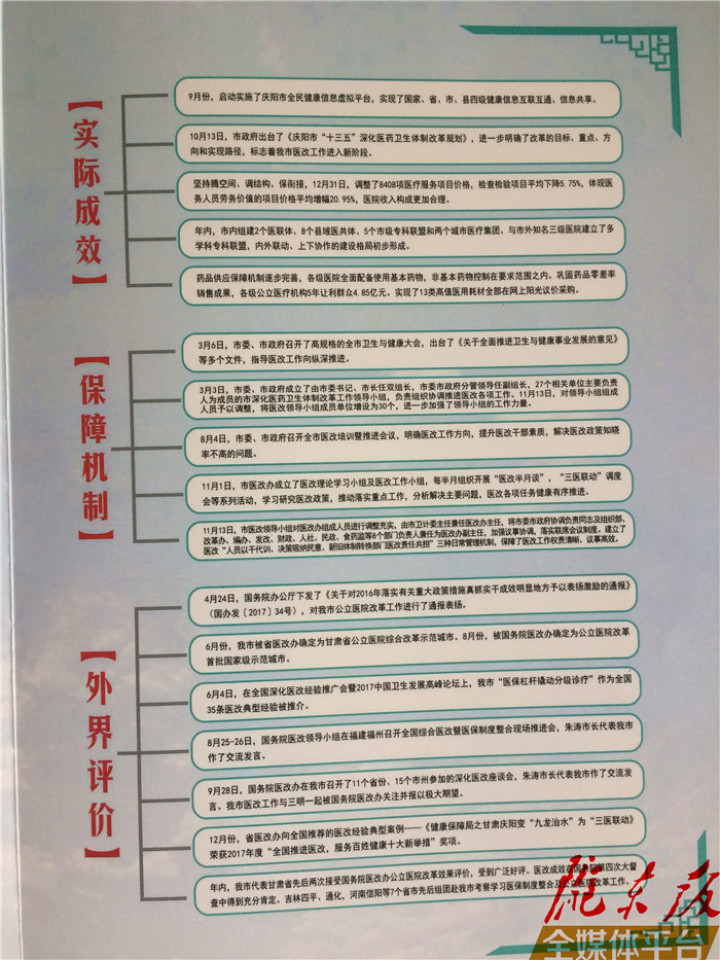 【实际成效】
9月份，启动实施了庆阳市全民健康信息虚拟平台，实现了国家、省、市、县四级健康信息互联互通、信息共享。
10月13日，市政府出台了《庆阳市“十三五”深化医药卫生体制改革规划》，进一步明确了改革的目标、重点、方
向和实现路径，标志着我市医改工作进入新阶段。
坚持腾空间、调结构、保衔接，12月31日，调整了8408项医疗服务项目价格，检查检验项目平均下降5.75%，体现医
务人员劳务价值的项目价格平均增幅20.95%，医院收入构成更加合理。
年内，市内组建2个医联体、8个县域医共体、5个市级专科联盟和两个城市医疗集团。与市外知名三级医院建立了多
学科专科联盟，内外联动、上下协作的建设格局初步形成。
药品供应保障机制逐步完善，各级医院全面配备使用基本药物，非基本药物控制在要求范围之内。巩固药品零差率
销售成果，各级公立医疗机构5年让利群众4.85亿元。实现了13类高值医用耗材全部在网上阳光议价采购。
【保障机制】
3月6日，市委、市政府召开了高规格的全市卫生与健康大会，出台了《关于全面推进卫生与健康事业发展的意见》
等多个文件，指导医改工作向纵深推进。
3月3日，市委、市政府成立了由市委书记、市长任双组长，市委市政府分管领导任副组长，27个相关单位主要负责
人为成员的市深化医药卫生体制改革工作领导小组，负责组织协调推进医改各项工作。11月13日，对领导小组组成
人员予以调整，将医改领导小组成员单位增设为30个，进一步加强了领导小组的工作力量。
8月4日，市委、市政府召开全市医改培训暨推进会议，明确医改工作方向，提升医改干部素质，解决医改政策知晓
率不高的问题。
11月1日，市医改办成立了医改理论学习小组及医改工作小组，每半月组织开展“医改半月谈”，“三医联动”调度
会等系列活动，学习研究医改政策，推动落实重点工作，分析解决主要问题，医改各项任务健康有序推进。
11月13日，市医改领导小组对医改办组成人员进行调整充实，由市卫计委主任兼任医改办主任，将市委市政府协调负责同志及组织部、
改革办、编办、发改、财政、人社、民政、食药监等8个部门负责人兼任为医改办副主任，加强议事协调，落实联席会议制度。建立了
医改“人员以干代训、决策吸纳民意、新旧体制转换部门医改责任共担”三种日常管理机制，保障了医改工作权责清晰、议事高效。
【外界评价】
4月24日，国务院办公厅下发了《关于对2016年落实有关重大政策措施真抓实干成效明显地方予以表扬激励的通报》
（国办发〔2017〕34号），对我市公立医院改革工作进行了通报表扬。
6月份，我市被省医改办确定为甘肃省公立医院综合改革示范城市。8月份，被国务院医改办确定为公立医院改革
首批国家级示范城市。
6月4日，在全国深化医改经验推广会暨2017中国卫生发展高峰论坛上，我市“医保杠杆撬动分级诊疗”作为全国
35条医改典型经验被推介。
8月25-26日，国务院医改领导小组在福建福州召开全国综合医改暨医保制度整合现场推进会，朱涛市长代表我市
作了交流发言。
9月28日，国务院医改办在我市召开了11个省份、15个市州参加的深化医改座谈会，朱涛市长代表我市作了交流发
言。我市医改工作与三明一起被国务院医改办关注并报以极大期望。
12月份，省医改办向全国推荐的医改经验典型案例——《健康保障局之甘肃庆阳变“九龙治水”为“三医联动》
荣获2017年度“全国推进医改，服务百姓健康十大新举措”奖项。
年内，我市代表甘肃省先后两次接受国务院医改办公立医院改革效果评价，受到广泛好评。医改成效在国务院第四次大督
查中得到充分肯定。吉林四平、通化，河南信阳等7个省市先后组团赴我市考察学习医保制度整合及公立医院改革工作。
陇东报
全媒体平台